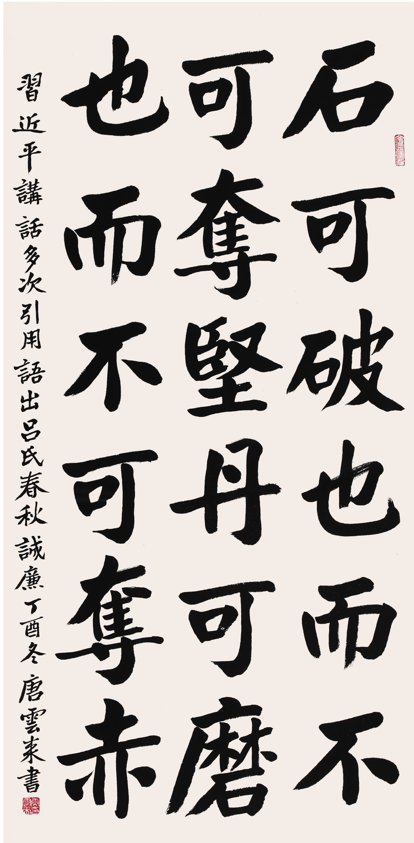 石可破也而不
可奪堅丹可磨
也而不可奪赤
習近平講話多次引用語出呂氏春秋誠廉丁酉冬唐雲來書